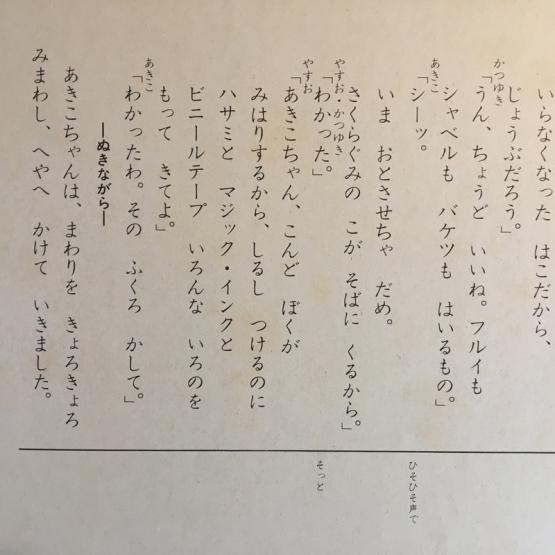 いらなくなった はこだから、
じょうぶだろう。」
かつゆき
「うん、ちょうど いいね。フルイも
シャベルも バケツも はいるもの。」
あきこ
「シーッ。
いま おとさせちゃ だめ。
さくらぐみの こが そばに くるから。」
やすお・かつゆき
「わかった。」
やすお
「あきこちゃん、こんど ぼくが
みはりするから、しるし つけるのに
ハサミと マジック・インクと
ビニールテープ いろんな いろのを
もって きてよ。」
あきこ
「わかったわ。その ふくろ かして。」
―ぬきながら―
あきこちゃんは、まわりを きょろきょろ
みまわし、へやへ かけて いきました。
ひそひそ声で
そっと